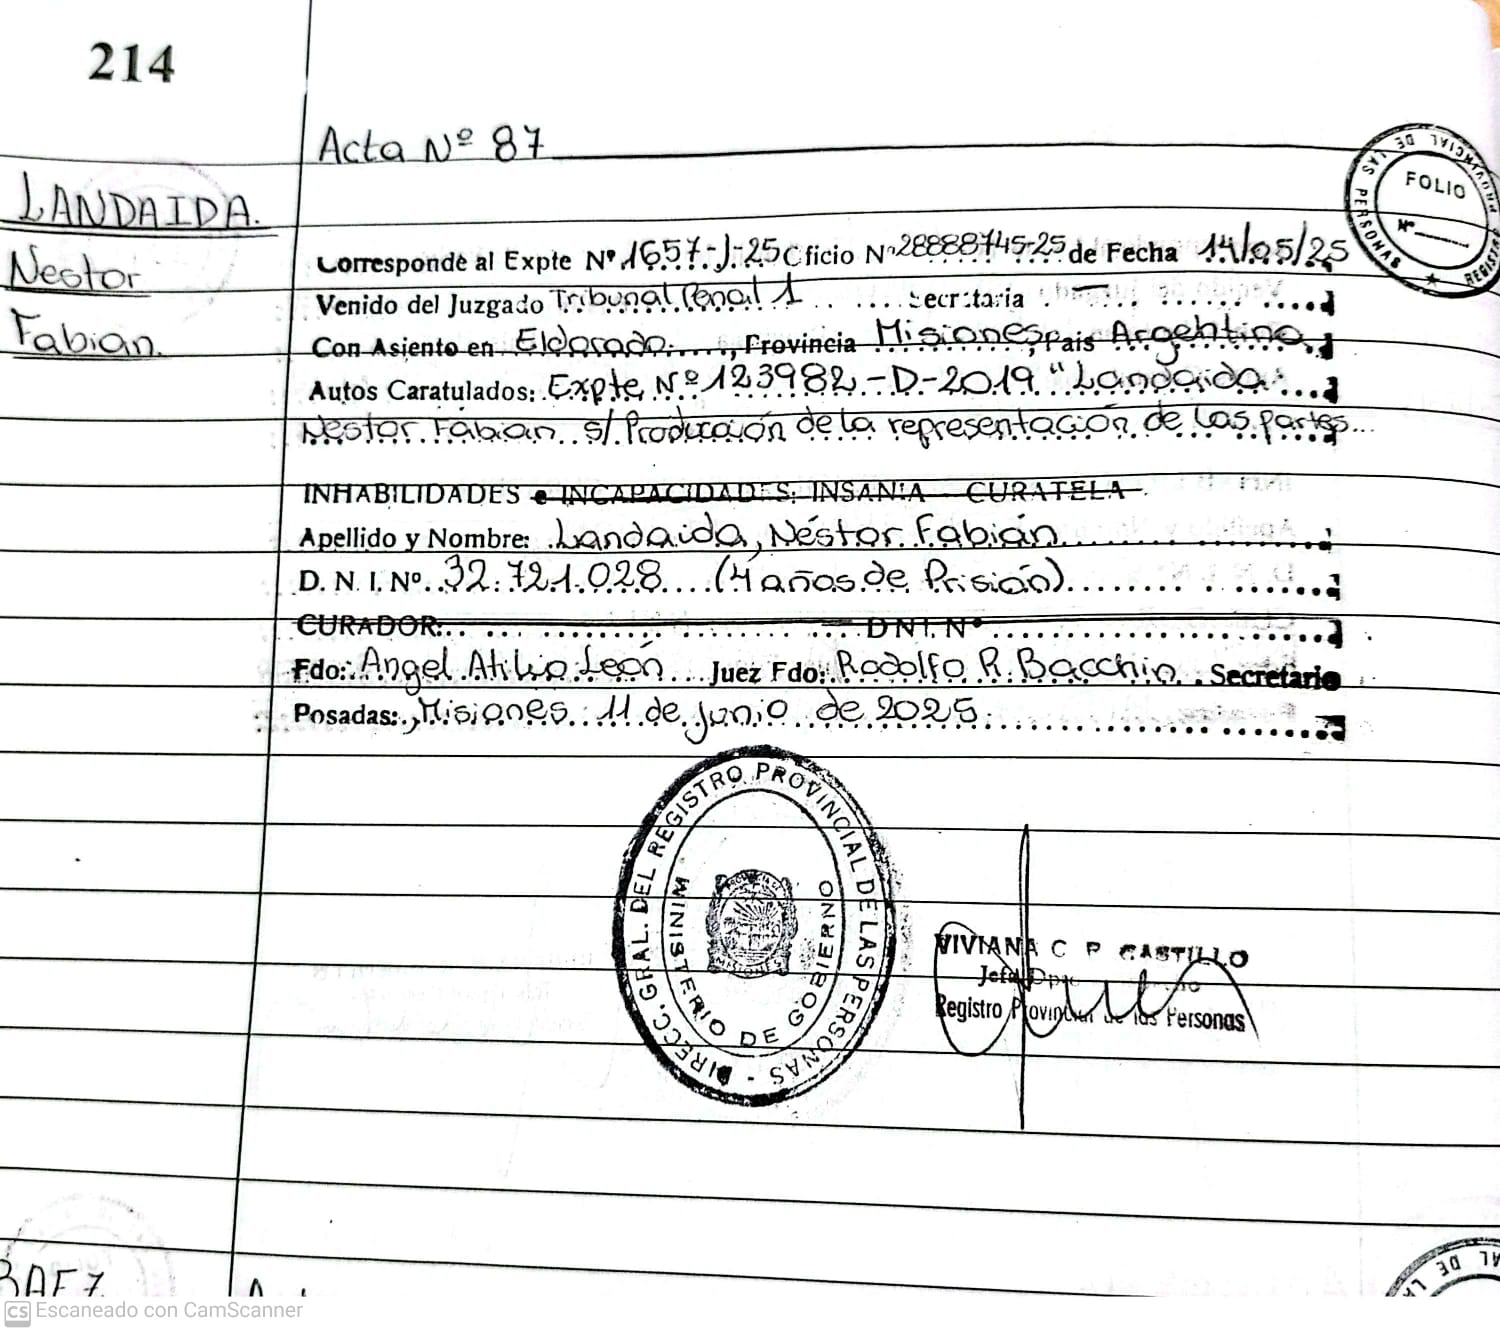 214
Acta Nº 87
LANDAIDA.
Nestor
Fabián.
FOLIO
Nº
REGISTRO PROVINCIAL DE LAS PERSONAS
Corresponde al Expte Nº 1657-J-25 Oficio Nº 28888745-25 de Fecha 14/05/25
Venido del Juzgado Tribunal Penal 1 Secretaria —
Con Asiento en Eldorado, Provincia Misiones, Pais Argentina
Autos Caratulados: Expte Nº 123982-D-2019 "Landaida
Néstor Fabián s/ Producción de la representación de las partes...
INHABILIDADES e INCAPACIDADES; INSANIA - CURATELA
Apellido y Nombre: Landaida, Néstor Fabián
D. N. I. Nº 32.721.028 (4 años de Prisión)
CURADOR: DNI. Nº
Fdo: Angel Atilio León Juez Fdo: Rodolfo R. Bacchin Secretario
Posadas: , Misiones 11 de junio de 2025.
DIRECC. GRAL. DEL REGISTRO PROVINCIAL DE LAS PERSONAS -
MINISTERIO DE GOBIERNO
MISIONES
VIVIANA C P CASTILLO
Jefa
Registro Provincial de las Personas
BAEZ
AL DE LA
CS Escaneado con CamScanner